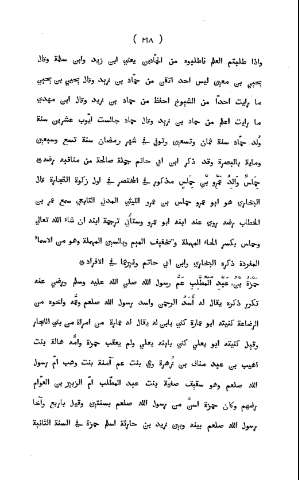 ( ٢١٨ )
واذا طلبتم العلم فاطلبوه من الحمادين يعني ابن زيد وابن سلمة وقال
يحيى بن معين ليس احد اتقن من حماد بن زيد وقال يحيى بن يحيى
ما رايت احدا من الشيوخ احفظ من حماد بن زيد وقال ابن مهدي
ما رايت اعلم من حماد بن زيد وقال حماد جالست ايوب عشرين سنة
ولد حماد سنة ثمان وتسعين وتوفي في شهر رمضان سنة تسع وسبعين
وماية بالبصرة وقد ذكر ابن ابي حاتم جملة صالحة من مناقبه رضه
حماس والد عمرو بن حماس مذكور في المختصر في اول زكوة التجارة قال
البخاري هو ابو عمرو حماس بن عمرو الليثي المدني التابعي سمع عمر بن
الخطاب رضه روى عنه ابنه ابو عمرو وستأتي ترجمة ابنه ان شاء الله تعالى
وحماس بكسر الحاء المهملة وتخفيف الميم وبالسين المهملة وهو من الاسماء
المفردة ذكره البخاري وابن ابي حاتم وغيرهما في الافراد
حمزة بن عبد المطلب عم رسول الله صلى الله عليه وسلم ورضي عنه
تكرر ذكره يقال له اسد الرحمن واسد رسول الله صلعم وعمه واخوه من
الرضاعة كنيته ابو عمارة كني بابن له يقال له عمارة من امراة من بني النجار
وقيل كنيته ابو يعلى كني بابنه يعلى ولم يعقب حمزة وامه هالة بنت
اهيب بن عبد مناف بن زهرة وهي بنت عم آمنة بنت وهب ام رسول
الله صلعم وهو شقيق صفية بنت عبد المطلب ام الزبير بن العوام
رضهم وكان حمزة اسن من رسول الله صلعم بسنتين وقيل باربع وآخا
رسول الله صلعم بينه وبين زيد بن حارثة اسلم حمزة في السنة الثانية